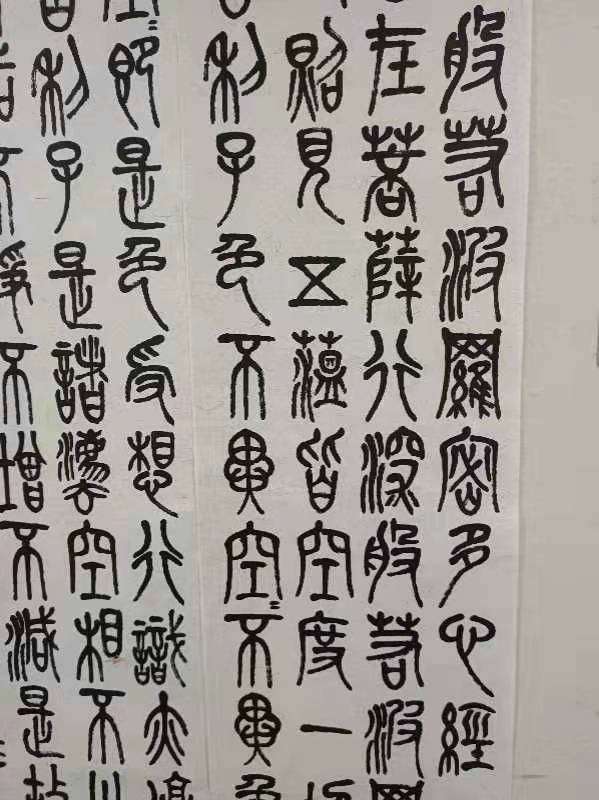 般若波羅密多心經
在菩薩行深般若波羅
照見五蘊皆空度一切
舍利子色不異空〻不異色
空〻即是色受想行識亦復
舍利子是諸灋空相不生
垢不淨不增不減是故